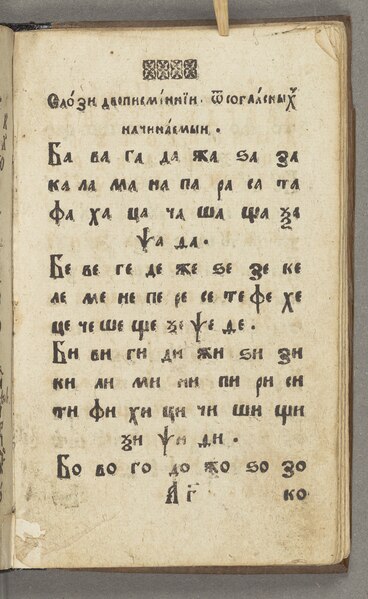 Слѡ́зи двописмѣ́ннїи. ѿ согла́сныхъ
начина́емыи.
Ба ва га да жа ѕа за
ка ла ма на па ра са та
фа ха ца ча ша ща ѯа
ѱа ѳа.
Бе ве ге де же ѕе зе ке
ле ме не пе ре се те фе хе
це че ше ще ѯе ѱе ѳе.
Би ви ги ди жи ѕи зи
ки ли ми ни пи ри си
ти фи хи ци чи ши щи
ѯи ѱи ѳи.
Бо во го до жо ѕо зо
А г҃ ко